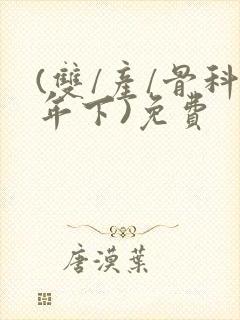 (雙/產/骨科
年下)免費
唐漠葉